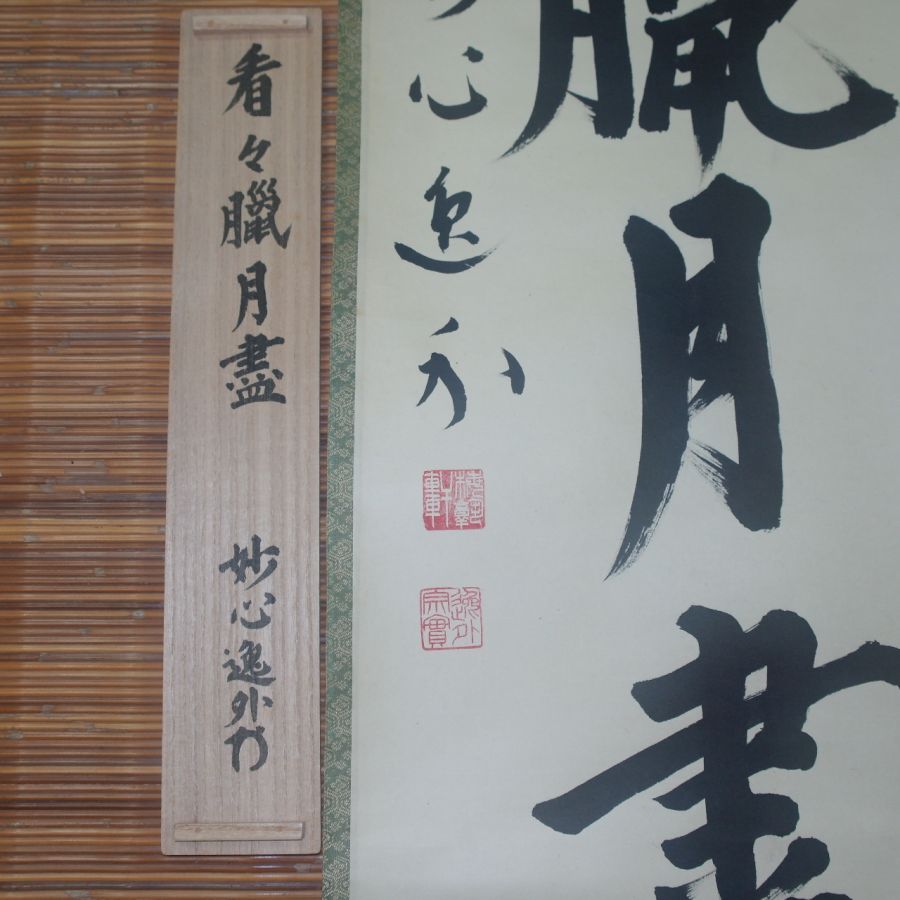 看々臘月盡
妙心逸外
臘月盡
妙心逸外
逸外